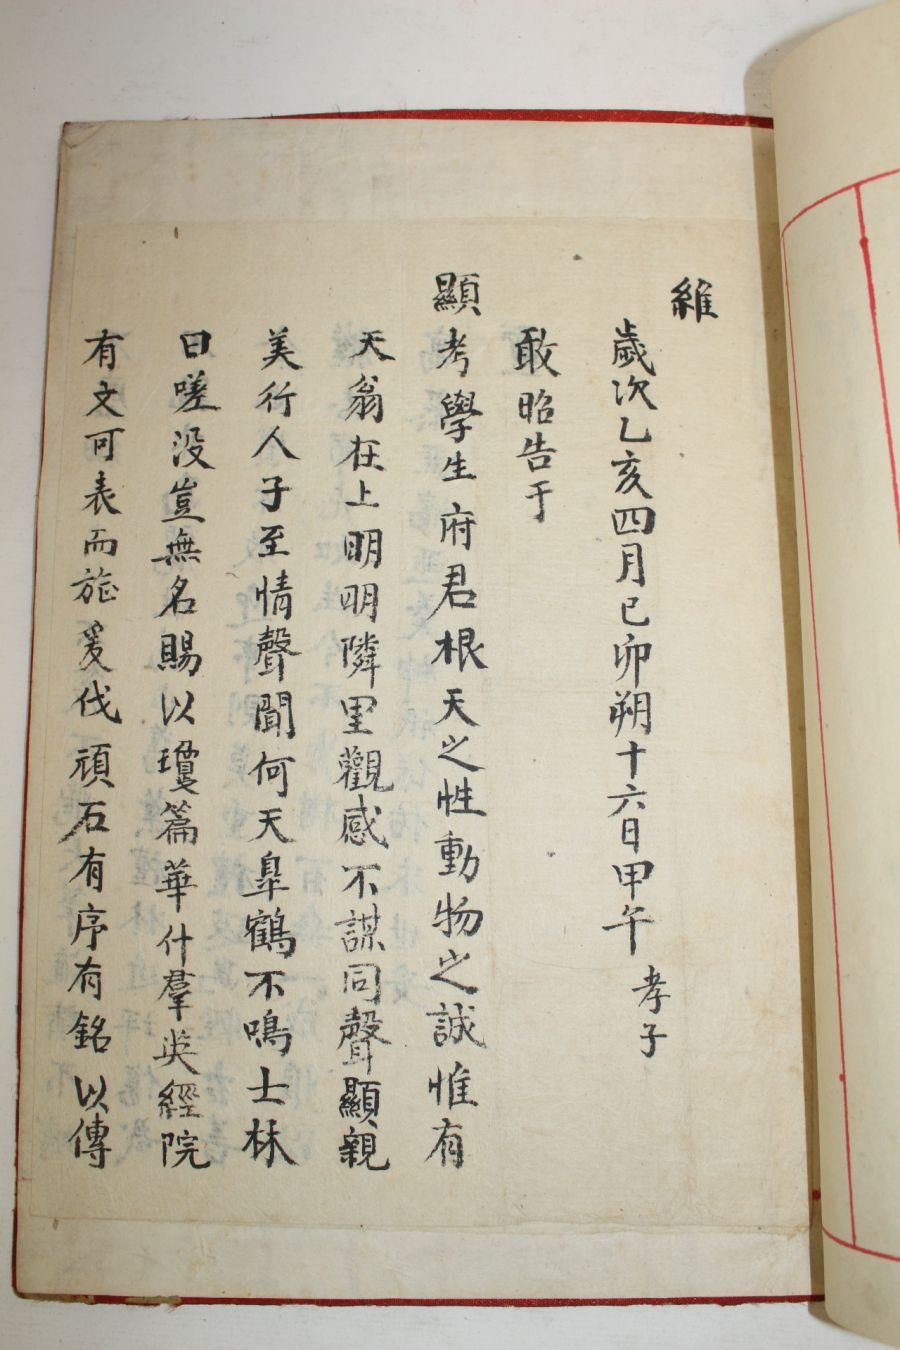 維
歲次乙亥四月己卯朔十六日甲午 孝子
敢昭告于
顯考學生府君根天之性動物之誠惟有
天翁在上明明隣里觀感不謀同聲顯親
美行人子至情聲聞何天臯鶴不鳴士林
曰嗟沒豈無名賜以瓊篇華什羣英經院
有文可表而旌爰伐頑石有序有銘以傳